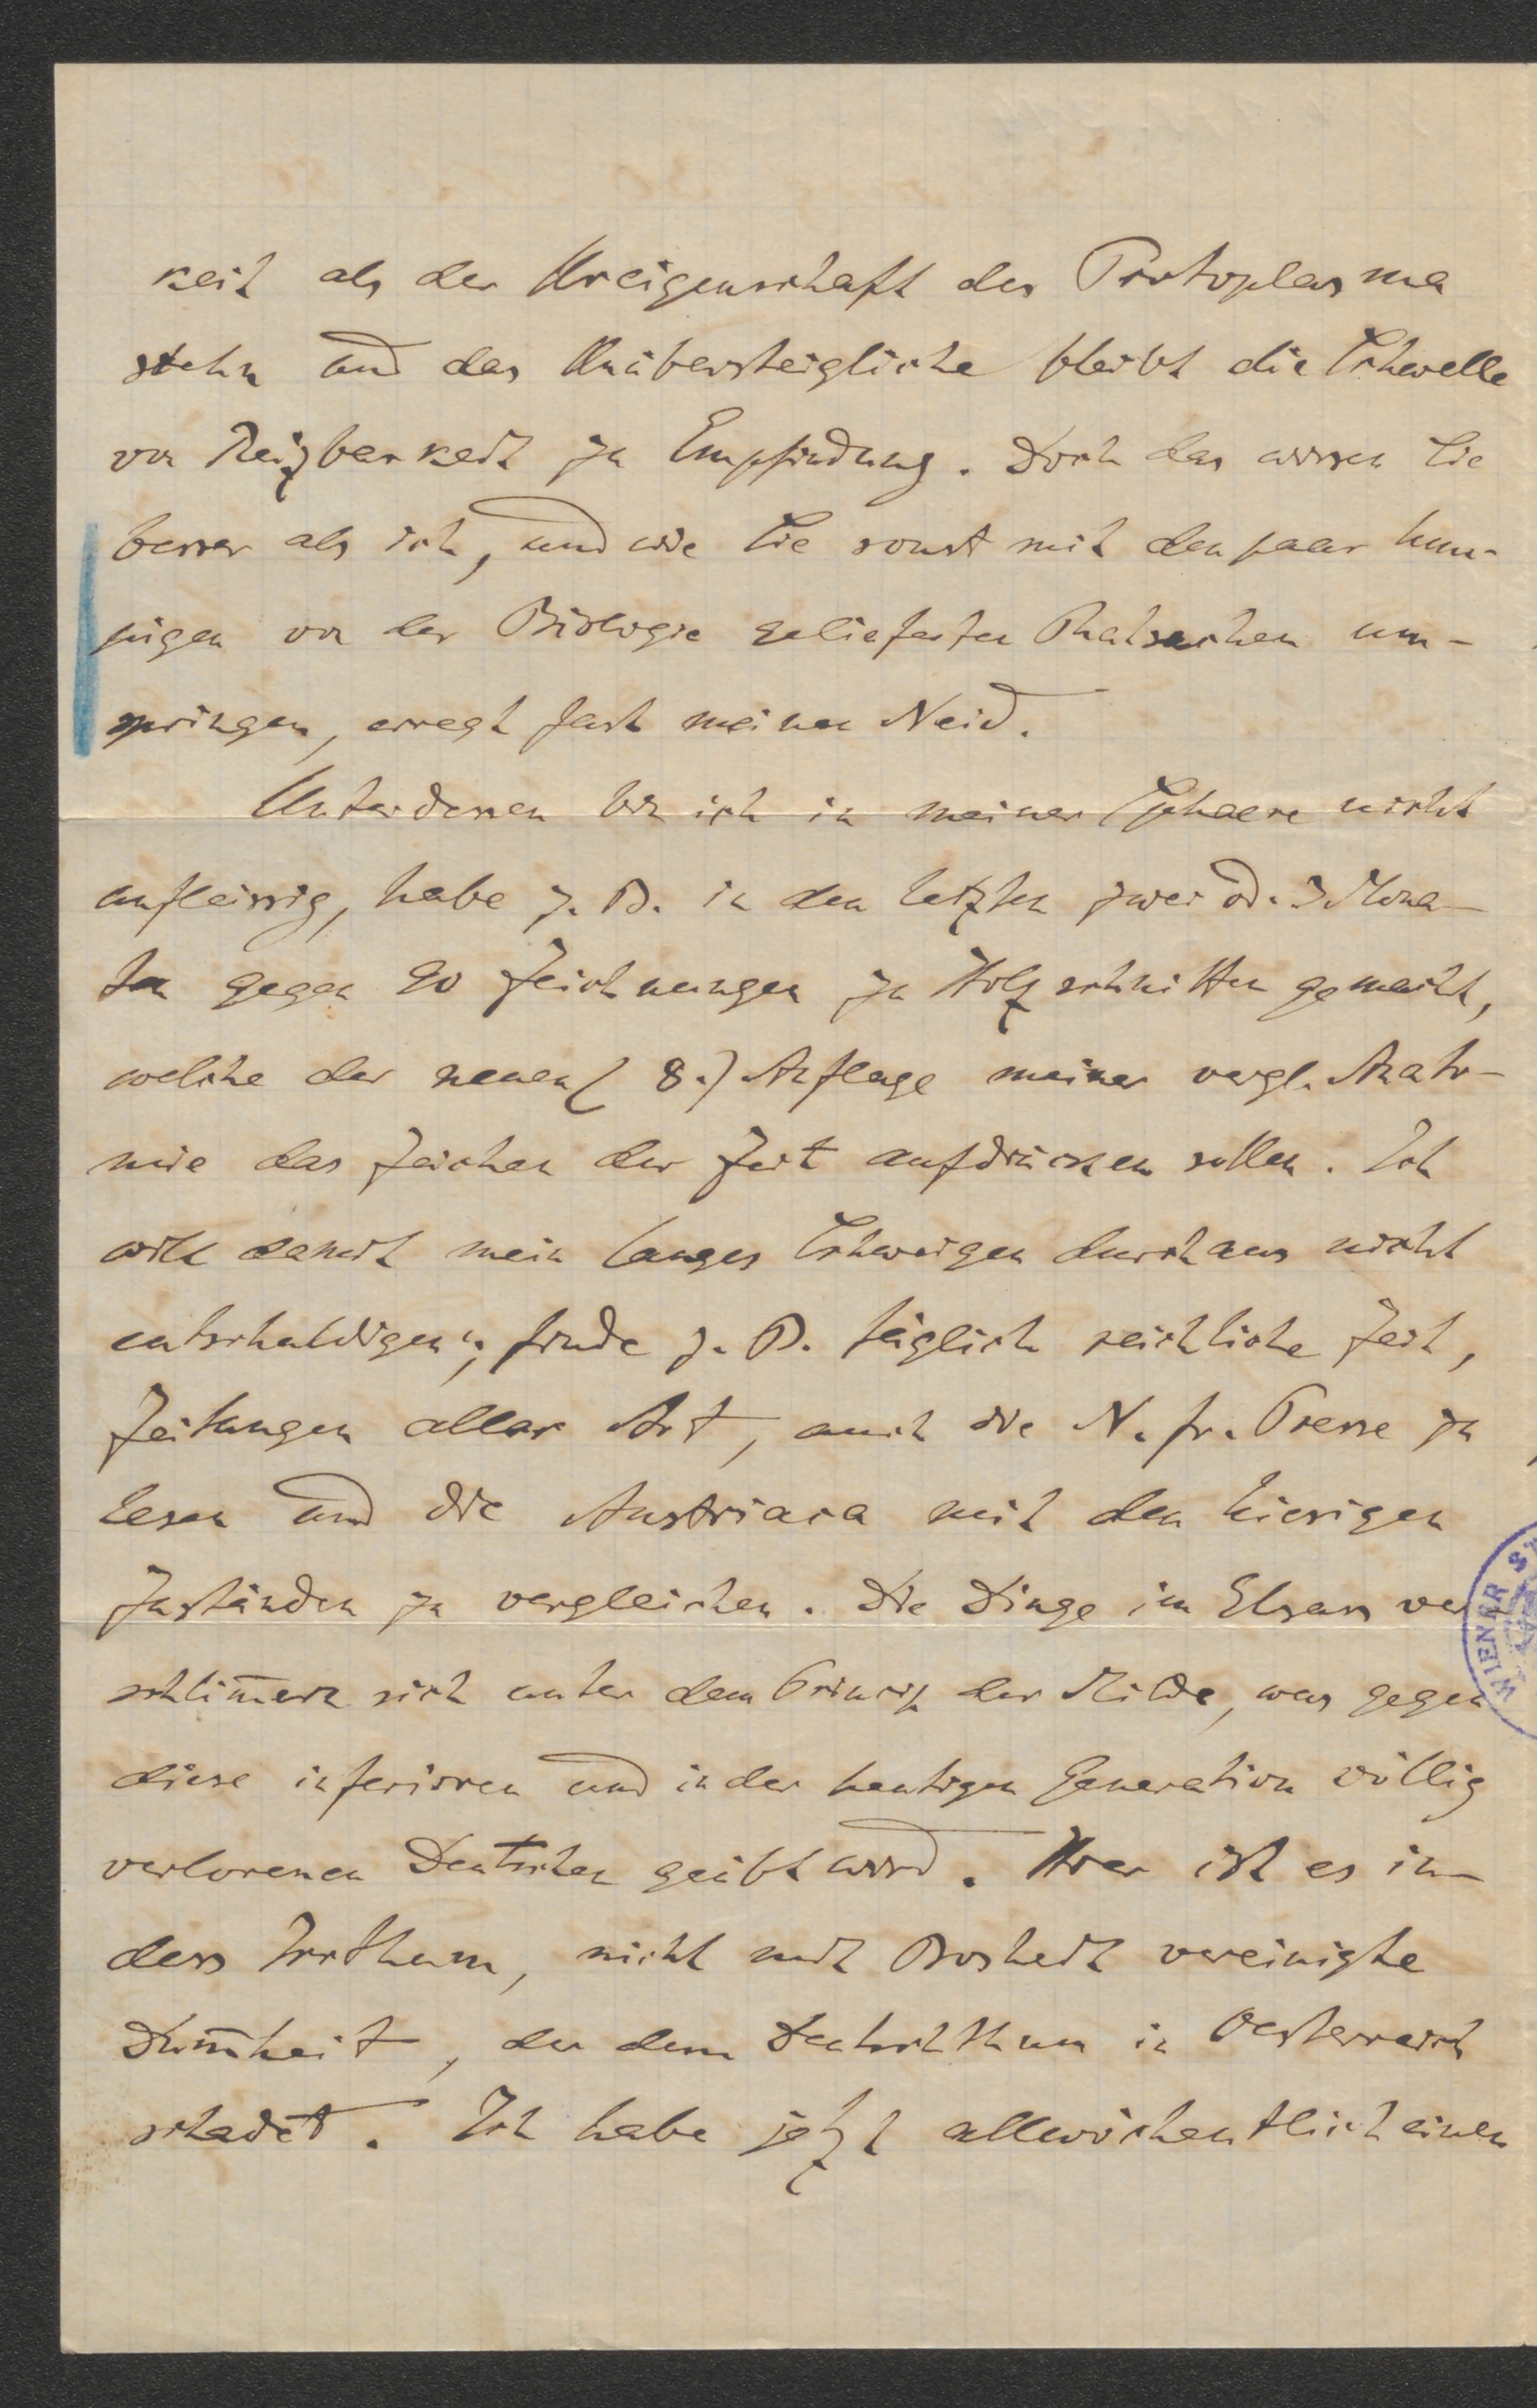 keit als der Ureigenschaft des Protoplasma
stehn und das Unübersteigliche bleibt die Schwelle
von Reizbarkeit zu Empfindung. Doch das wissen Sie
besser als ich, und wie Sie sonst mit den paar lum-
pigen von der Biologie gelieferten Thatsachen um-
springen, erregt fast meinen Neid.
Unterdessen bin ich in meiner Sphaere nicht
unfleissig, habe z. B. in den letzten zwei od. 3 Mona-
ten gegen 90 Zeichnungen zu Holzschnitten gemacht,
welche der neuen (8.) Auflage meiner vergl. Anato-
mie das Zeichen der Zeit aufdrücken sollen. Ich
will damit mein langes Schweigen durchaus nicht
entschuldigen; finde z. B. täglich reichliche Zeit,
Zeitungen aller Art, auch die N. fr. Presse zu
lesen und die Austriaca mit den hiesigen
Zuständen zu vergleichen. Die Dinge im Elsass ver
schlim̅ern sich unter dem Princip der Milde, was gegen
diese inferioren und in der heutigen Generation völlig
verlorenen Deutschen geübt wird. Hier ist es in-
dess Irrthum, nicht mit Bosheit vereinigte
Dum̅heit, der dem Deutschthum in Oesterreich
schadet. Ich habe jetzt allwöchentlich einen
WIENER